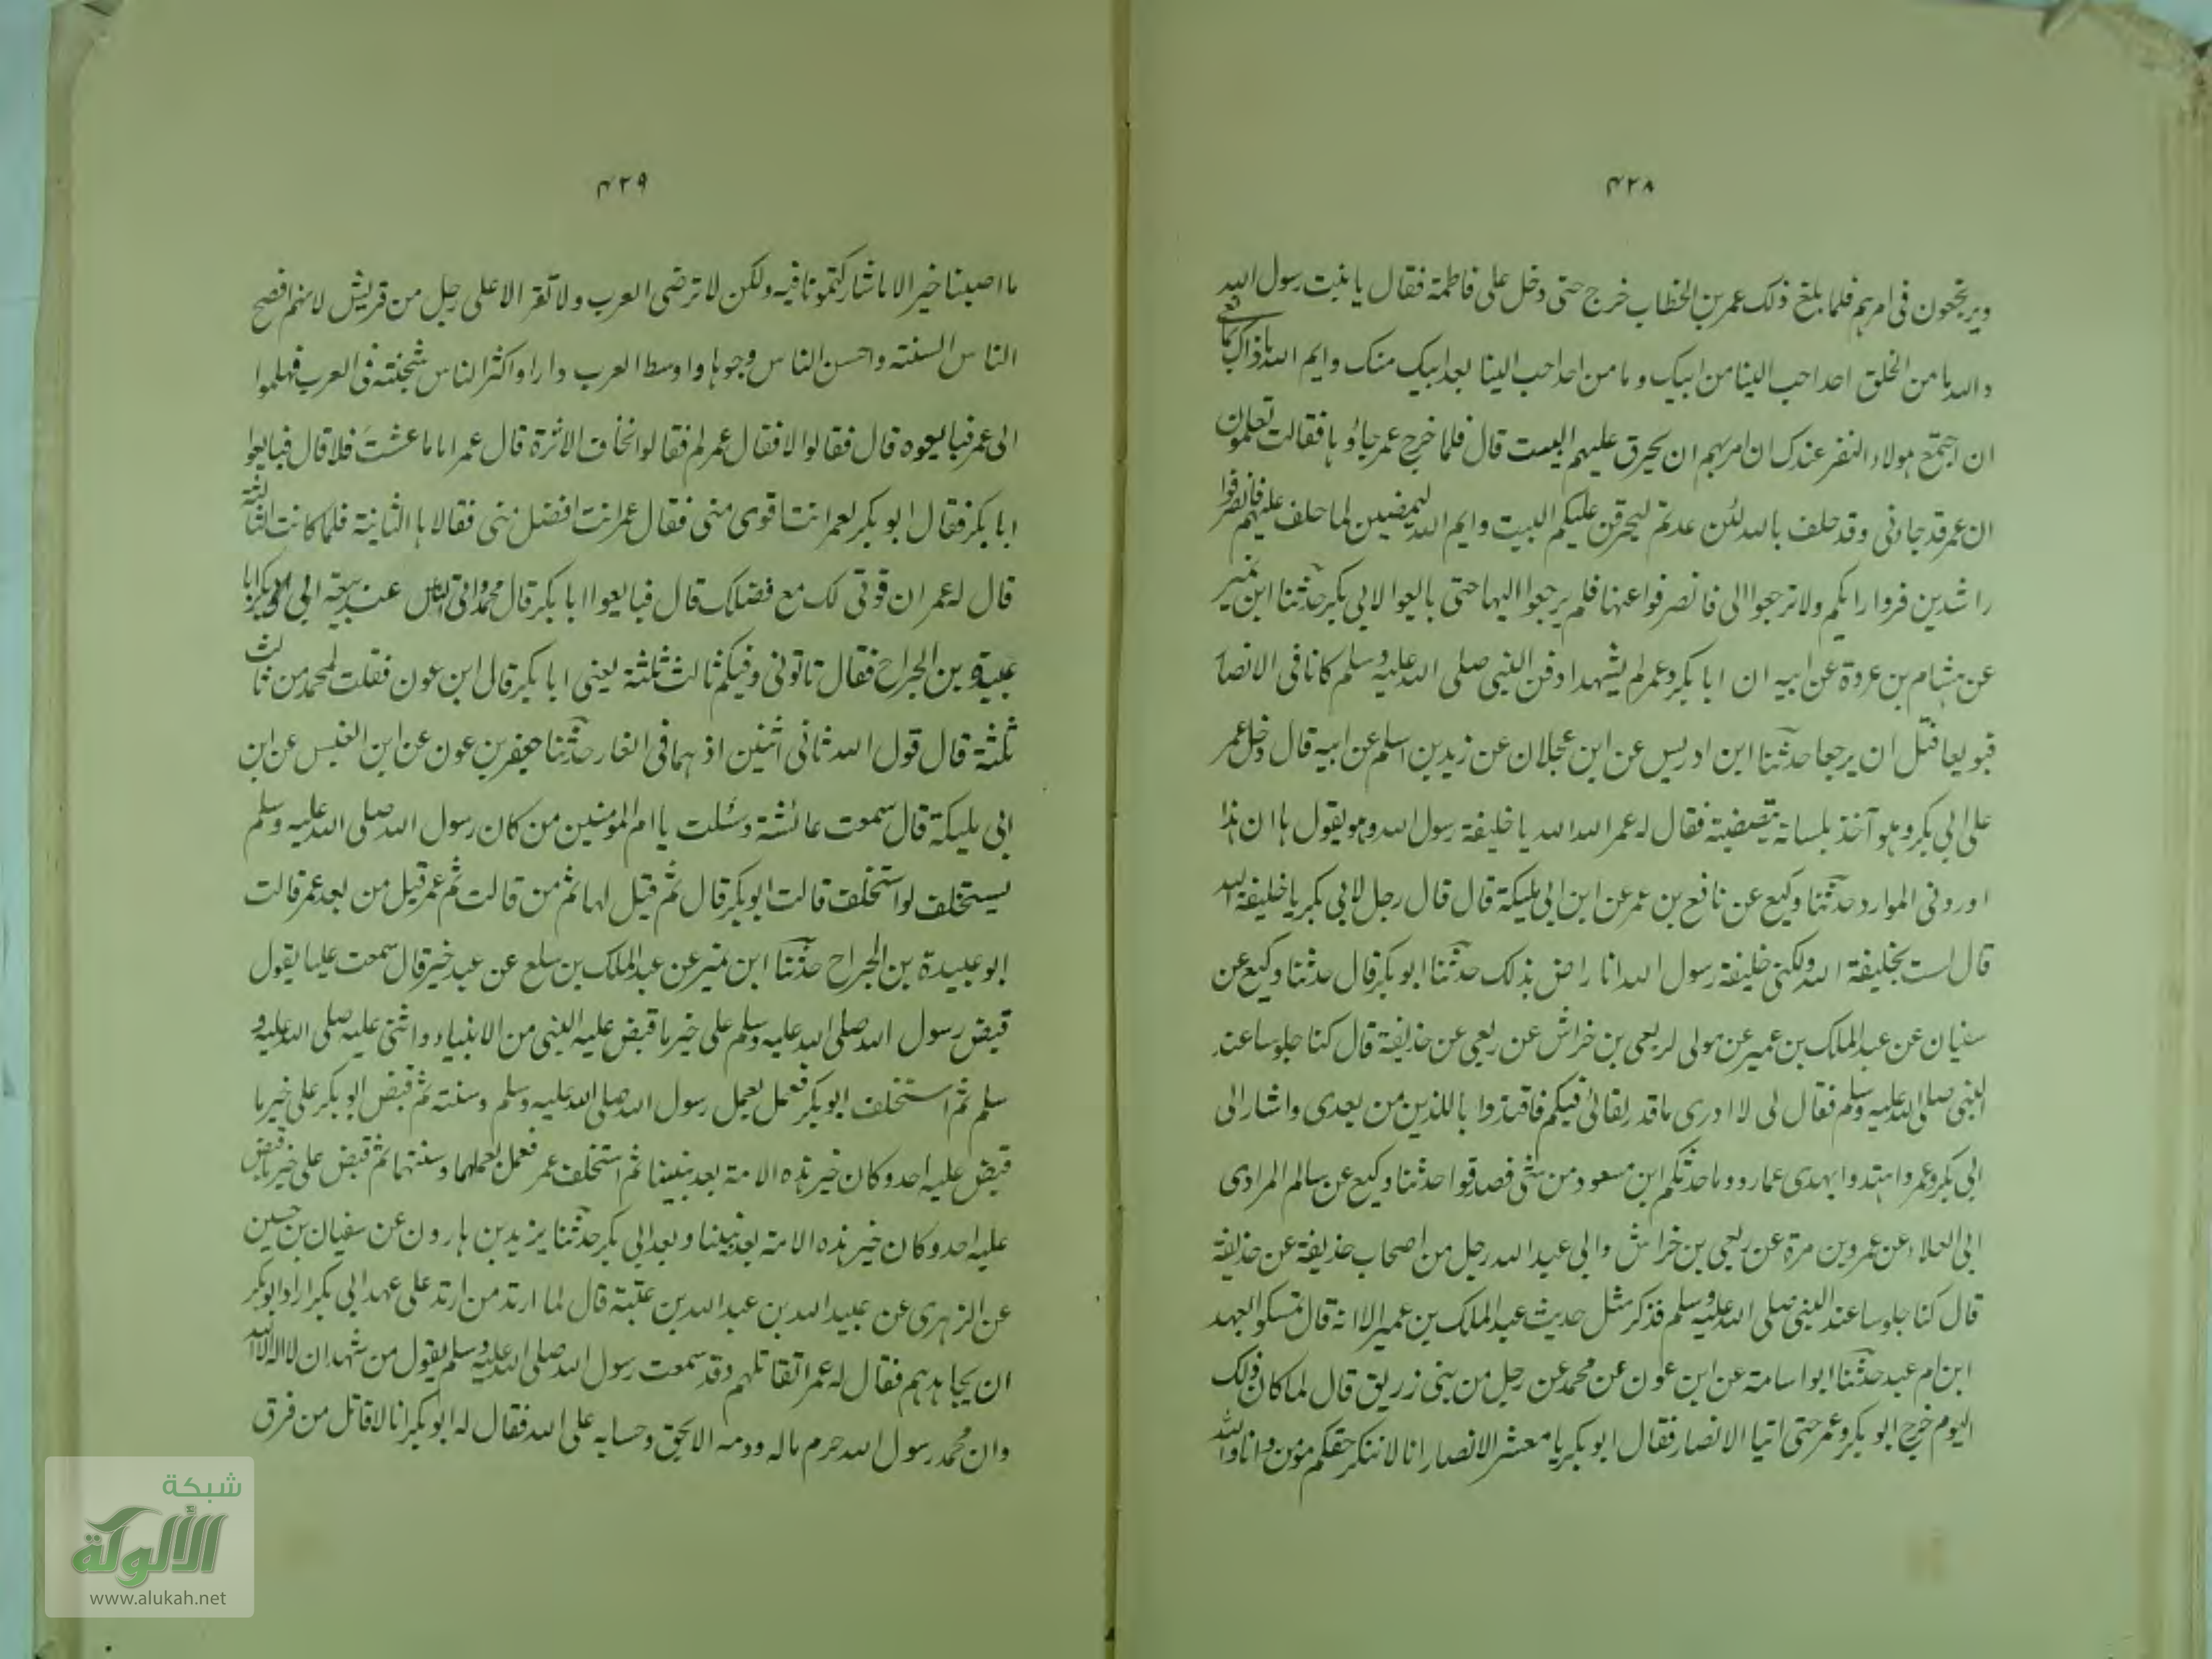 ۴۲۸
ويرتجعون فى امرهم فلما بلغ ذلك عمر بن الخطاب خرج حتى دخل على فاطمة فقال يا بنت رسول الله
والله ما من الخلق احد احب الينا من ابيك وما من احد احب الينا بعد ابيك منك وايم الله ما ذاك بمانعى
ان اجتمع هولاء النفر عندك ان امربهم ان يحرق عليهم البيت قال فلما خرج عمر جاؤها فقالت تعلمون
ان عمر قد جاءنى وقد حلف بالله لئن عدتم ليحرقن عليكم البيت وايم الله ليمضين لما حلف عليه فانصرفوا
راشدين فروا رايكم ولا ترجعوا الى فانصرفوا عنها فلم يرجعوا اليها حتى بايعوا لابى بكر حدثنا ابن نمير
عن هشام بن عروة عن ابيه ان ابا بكر وعمر لم يشهدا دفن النبى صلى الله عليه وسلم كانا فى الانصار
فبويعا قبل ان يرجعا حدثنا ابن ادريس عن ابن عجلان عن زيد بن اسلم عن ابيه قال دخل عمر
على ابى بكر وهو آخذ بلسانه ينضنضه فقال له عمر الله الله يا خليفة رسول الله وهو يقول ها ان هذا
اوردنى الموارد حدثنا وكيع عن نافع بن عمر عن ابن ابى مليكة قال قال رجل لابى بكر يا خليفة الله
قال لست بخليفة الله ولكنى خليفة رسول الله انا راض بذلك حدثنا ابو بكر قال حدثنا وكيع عن
سفيان عن عبد الملك بن عمير عن مولى لربعى بن خراش عن ربعى عن حذيفة قال كنا جلوسا عند
النبى صلى الله عليه وسلم فقال لى لا ادرى ما قدر بقائى فيكم فاقتدوا باللذين من بعدى واشار الى
ابى بكر وعمر واهتدوا بهدى عمار وما حدثكم ابن مسعود من شئ فصدقوا حدثنا وكيع عن سالم المرادى
ابى العلاء عن عمرو بن مرة عن ربعى بن خراش وابى عبد الله رجل من اصحاب حذيفة عن حذيفة
قال كنا جلوسا عند النبى صلى الله عليه وسلم فذكر مثل حديث عبد الملك بن عمير الا انه قال تمسكوا بعهد
ابن ام عبد حدثنا ابو اسامة عن ابن عون عن محمد عن رجل من بنى زريق قال لما كان ذلك
اليوم خرج ابو بكر وعمر حتى اتيا الانصار فقال ابو بكر يا معشر الانصار انا لا ننكر حقكم مؤمن وانا والله
۴۲۹
ما اصبنا خيرا الا ما شاركتمونا فيه ولكن لا ترضى العرب ولا تقر الا على رجل من قريش لانهم افصح
الناس السنته واحسن الناس وجوها واوسط العرب دارا واكثر الناس شجنته فى العرب فهلموا
الى عمر فبايعوه قال فقالوا لا فقال عمر لم فقالوا نخاف الاثرة قال عمر اما ما عشت فلا قال فبايعوا
ابا بكر فقال ابو بكر لعمر انت اقوى منى فقال عمر انت افضل منى فقالاها الثانية فلما كانت الثالثة
قال له عمر ان قوتى لك مع فضلك قال فبايعوا ابا بكر قال محمد واتى الناس عند بيعة ابى بكر ابا
عبيدة بن الجراح فقال تاتونى وفيكم ثالث ثلثة يعنى ابا بكر قال ابن عون فقلت لمحمد من ثالث
ثلثة قال قول الله ثانى اثنين اذ هما فى الغار حدثنا جعفر بن عون عن ابن العنبس عن ابن
ابى مليكة قال سمعت عائشة وسئلت يا ام المؤمنين من كان رسول الله صلى الله عليه وسلم
يستخلف لو استخلف قالت ابو بكر قال ثم قيل لها ثم من قالت ثم عمر قيل من بعد عمر قالت
ابو عبيدة بن الجراح حدثنا ابن نمير عن عبد الملك بن سلع عن عبد خير قال سمعت عليا يقول
قبض رسول الله صلى الله عليه وسلم على خير ما قبض عليه النبى من الانبياء واثنى عليه صلى الله عليه و
سلم ثم استخلف ابو بكر فعمل بعمل رسول الله صلى الله عليه وسلم وسنته ثم قبض ابو بكر على خير ما
قبض عليه احد وكان خير هذه الامة بعد نبينا ثم استخلف عمر فعمل بعملهما وسنتهما ثم قبض على خير ما قبض
عليه احد وكان خير هذه الامة بعد نبينا وبعد ابى بكر حدثنا يزيد بن هارون عن سفيان بن حسين
عن الزهرى عن عبيد الله بن عبد الله بن عتبة قال لما ارتد من ارتد على عهد ابى بكر اراد ابو بكر
ان يجاهدهم فقال له عمر اتقاتلهم وقد سمعت رسول الله صلى الله عليه وسلم يقول من شهد ان لا اله الا الله
وان محمد رسول الله حرم ماله ودمه الا بحق وحسابه على الله فقال له ابو بكر انا لا قاتل من فرق
شبكة
الألوكة
www.alukah.net